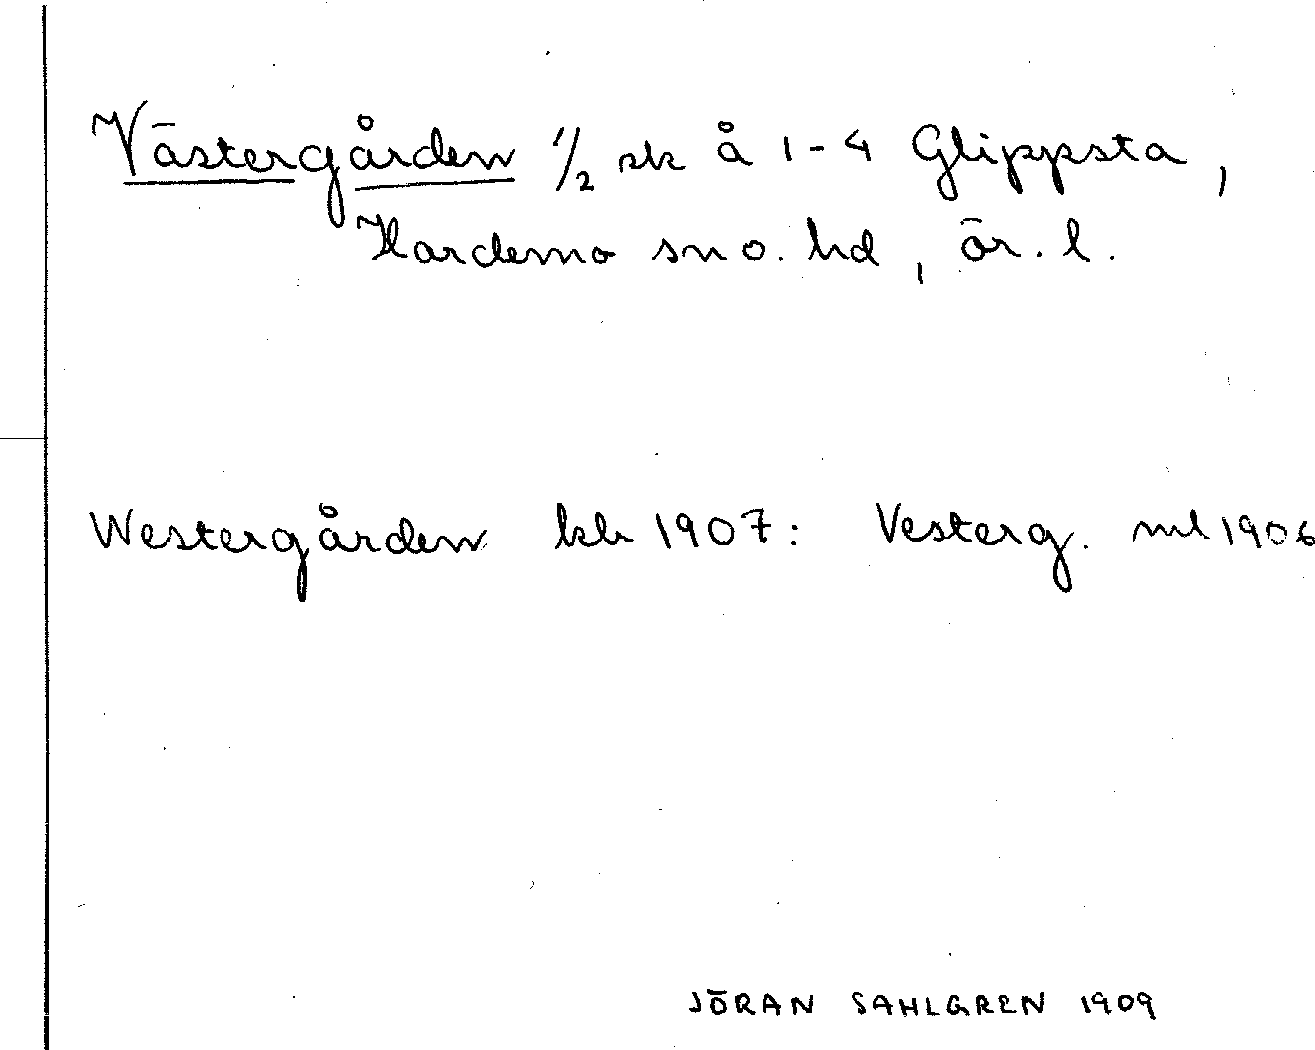 Västergården 1/2 sk å 1-4 Glippsta,
Hardemo sn o. hd, ör. l.
Westergården kb 1907: Vesterg. ml 1906
JÖRAN SAHLGREN 1909